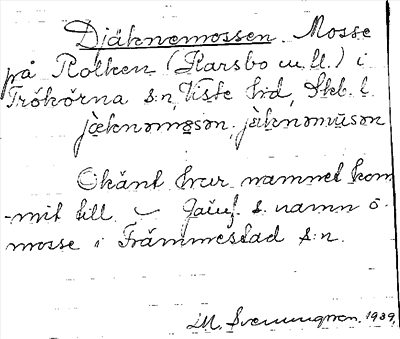 Djäknemossen. Mosse
på Rolken (Karsbo m.fl.) i
Trökörna s:n, Viste hd, Skb. l.
jäknəmɵsən, jäknəmūsən
Okänt hur namnet kom-
mit till. – Jämf. s. namn å
mosse i Främmestad s:n.
M. Svenungsson. 1939.